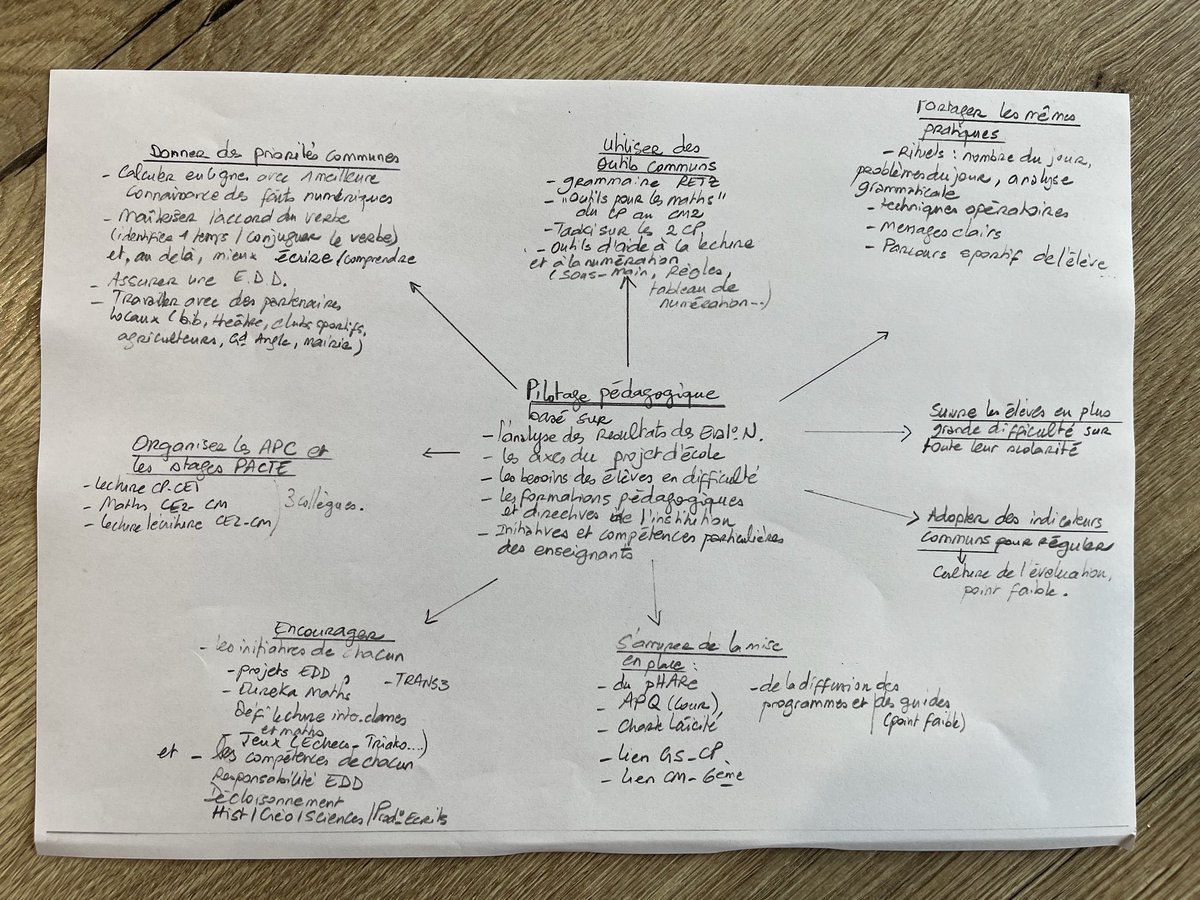 Donner des priorités communes
- Calculer en lignes avec 1 meilleure
connaissance des faits numériques
- Maîtriser l'accord du verbe
(identifier 1 temps / conjuguer le verbe)
et, au delà, mieux écrire/comprendre
- Assurer une E.D.D.
- Travailler avec des partenaires
locaux (bib, théâtre, clubs sportifs,
agriculteurs, Gd Angle, mairie)
Utiliser des
Outils Communs
- grammaire RETZ
- "Outils pour les maths"
du CP au CM2
- Taoki sur les 2 CP
- Outils d'aide à la lecture
et à la numération
(sous-main, Règles,
tableau de
numération...)
Partager les mêmes
pratiques
- Rituels : nombre du jour,
problèmes du jour, analyse
grammaticale
- techniques opératoires
- messages clairs
- Parcours sportif de l'élève
Pilotage pédagogique
basé sur
- l'analyse des résultats des Evalo N.
- les axes du projet d'école
- les besoins des élèves en difficulté
- les formations pédagogiques
et directives de l'institution
- Initiatives et compétences particulières
des enseignants
Suivre les élèves en plus
grande difficulté sur
toute leur scolarité
Organiser les APC et
les stages PACTE
- lecture CP-CE1
- Maths CE2-CM
- lecture/écriture CE2-CM
3 collègues.
Adopter des indicateurs
Communs pour réguler
Culture de l'évaluation,
point faible.
Encourager
- les initiatives de chacun
- projets EDD, - TRANS3
- Eureka maths
Défi lecture inter.classes
et maths
Jeux (Echecs - Trioko...)
et - les compétences de chacun
Responsabilité EDD
Décloisonnement
Hist/Géo/Sciences/Prodo Ecrits
S'assurer de la mise
en place :
- du pHARe
- APQ (cour)
- Charte laïcité
- lien GS-CP
- lien CM-6ème
- de la diffusion des
programmes et des guides
(point faible)